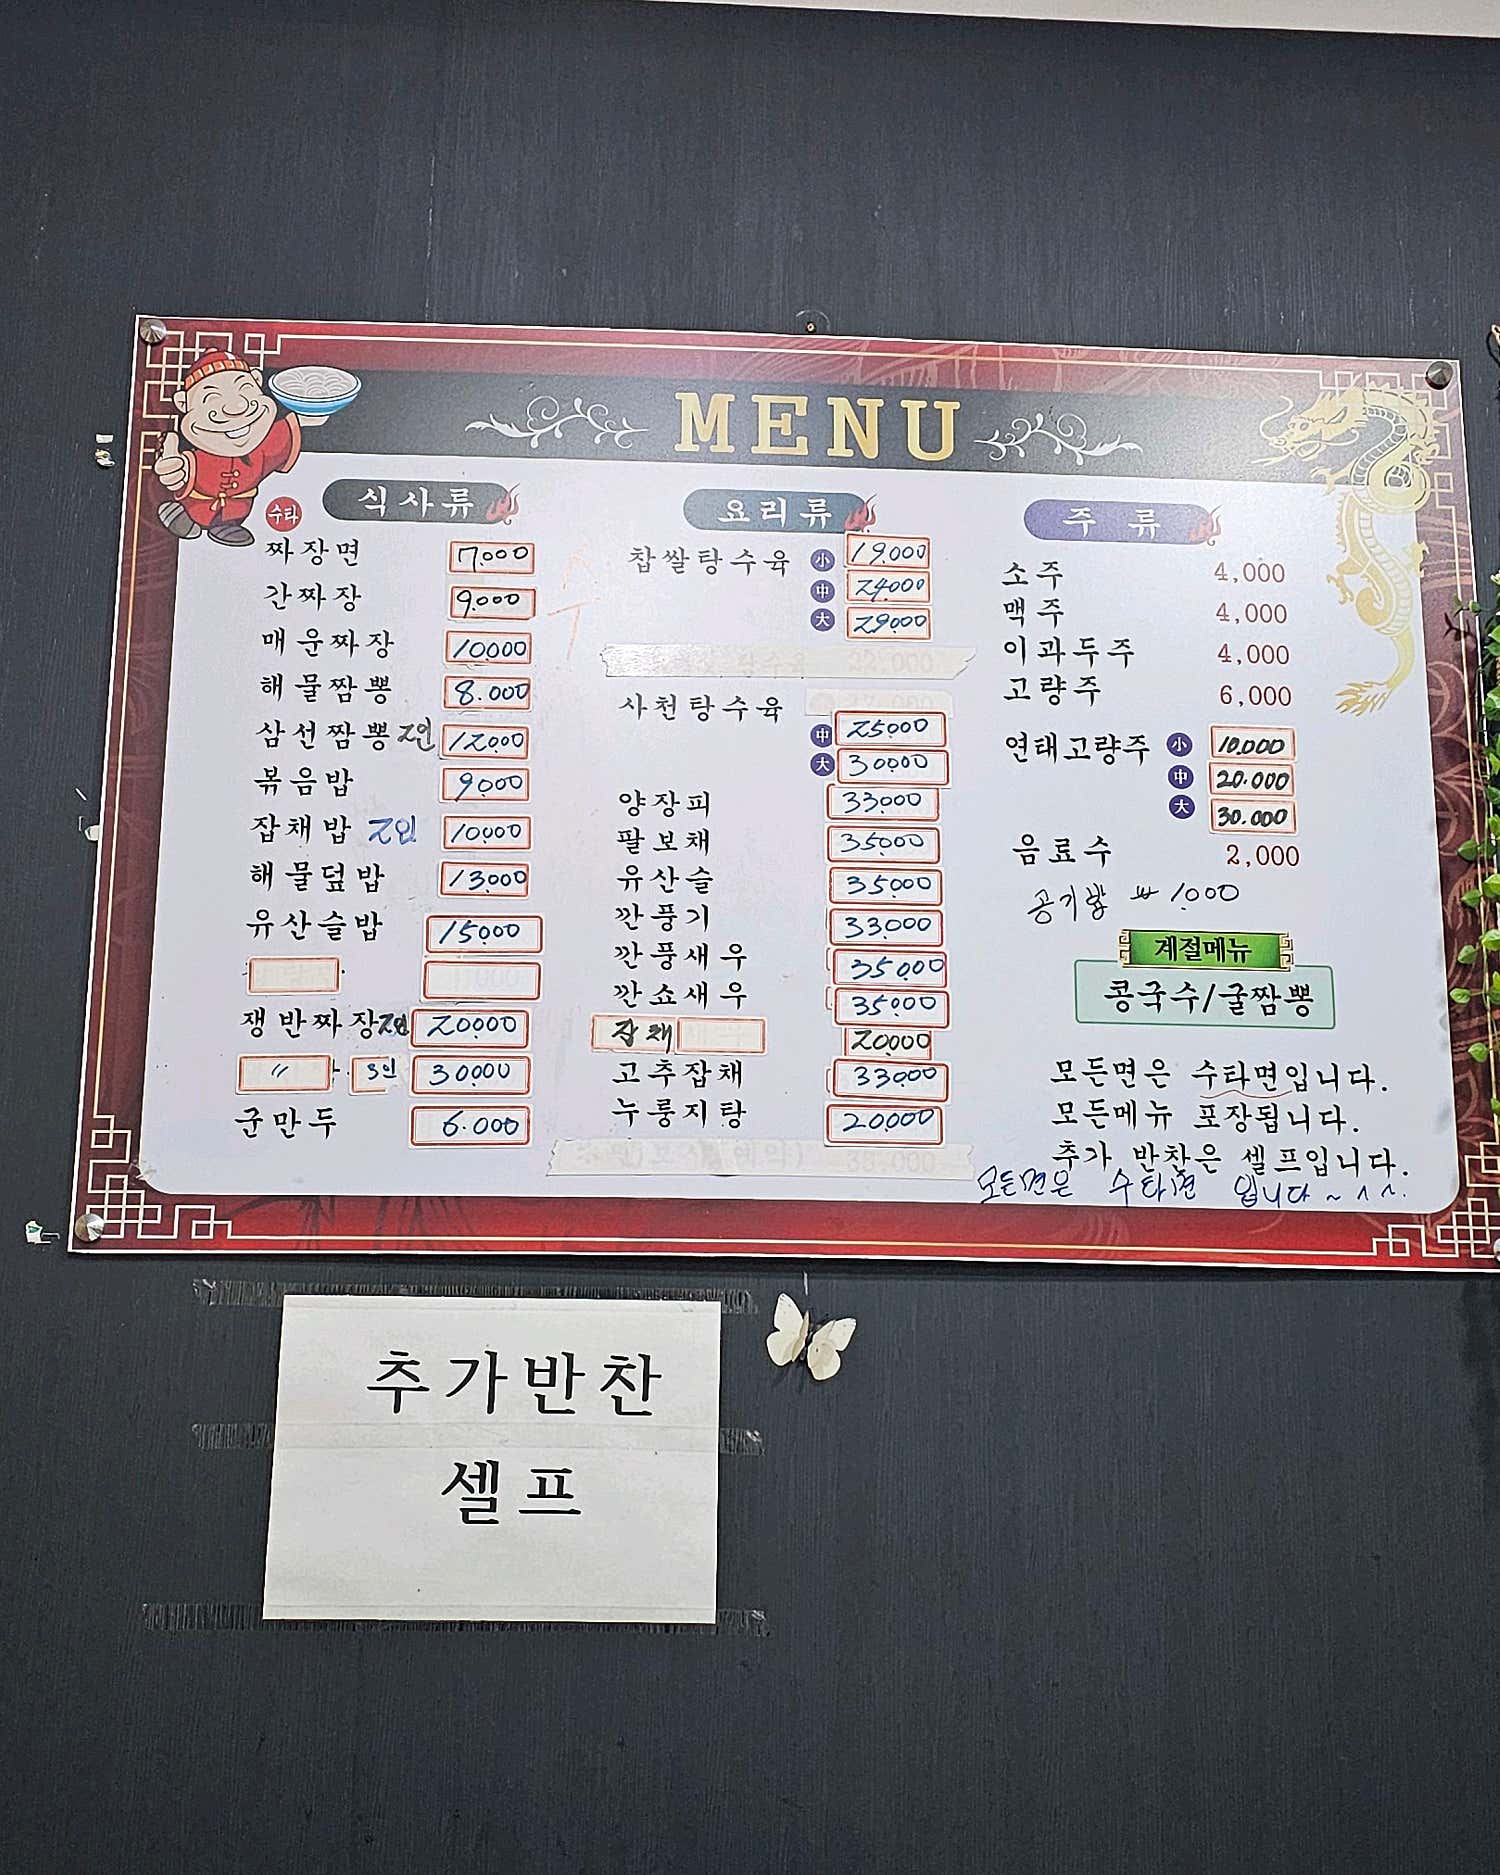 MENU
수타
식사류
짜장면 7,000
간짜장 9,000
매운짜장 10,000
해물짬뽕 8,000
삼선짬뽕 2인 12,000
볶음밥 9,000
잡채밥 2인 10,000
해물덮밥 13,000
유산슬밥 15,000
쟁반짜장 2인 20,000
〃 3인 30,000
군만두 6,000
요리류
찹쌀탕수육 小 19,000
中 24,000
大 29,000
사천탕수육
中 25,000
大 30,000
양장피 33,000
팔보채 35,000
유산슬 35,000
깐풍기 33,000
깐풍새우 35,000
깐쇼새우 35,000
잡채 20,000
고추잡채 33,000
누룽지탕 20,000
주류
소주 4,000
맥주 4,000
이과두주 4,000
고량주 6,000
연태고량주 小 10,000
中 20,000
大 30,000
음료수 2,000
공기밥 ₩ 1,000
계절메뉴
콩국수/굴짬뽕
모든면은 수타면입니다.
모든메뉴 포장됩니다.
추가 반찬은 셀프입니다.
모든면은 수타면 입니다~^^.
추가반찬
셀프